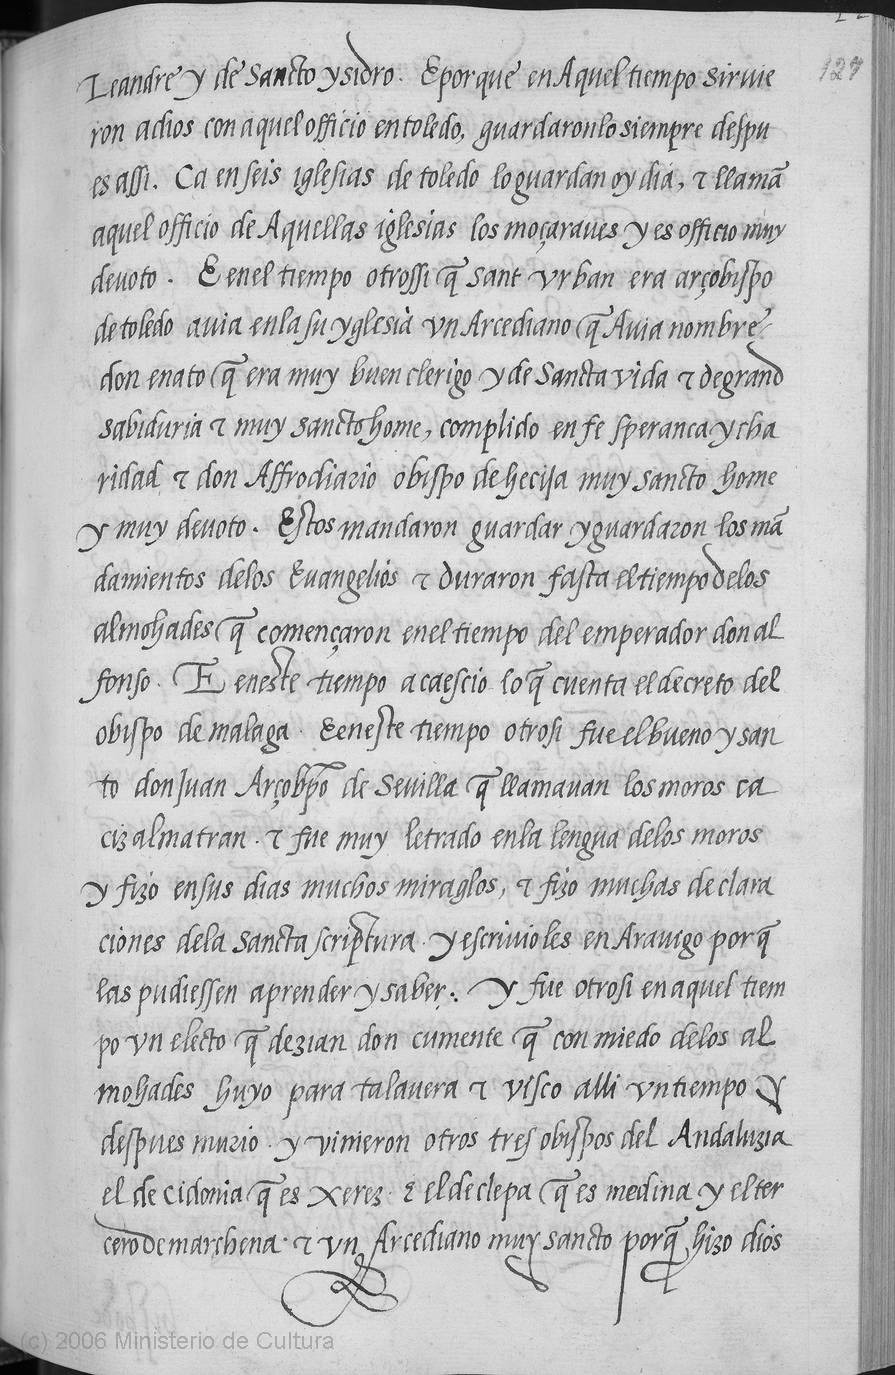 127
Leandre y de Sancto ysidro. E porque en Aquel tiempo sirvie
ron adios con aquel officio en toledo, guardaron lo siempre despu
es assi. Ca en seis iglesias de toledo lo guardan oy dia, & llamã
aquel officio de Aquellas iglesias los moçaraves y es officio muy
devoto. E en el tiempo otrossi q̃ Sant Vrban era arçobispo
de toledo avia en la su yglesia vn Arcediano q̃ Avia nombre
don enato q̃ era muy buen clerigo y de Sancta vida & de grand
sabiduria & muy sancto home, complido en fe speranca y cha
ridad & don Affrodiario obispo de hecija muy sancto home
y muy devoto. Estos mandaron guardar y guardaron los mã
damientos delos Evangelios & duraron fasta el tiempo delos
almohades q̃ començaron en el tiempo del emperador don al
fonso. E en este tiempo acaescio lo q̃ cuenta el decreto del
obispo de malaga. E en este tiempo otrosi fue el bueno y san
to don Juan Arçobpo de Sevilla q̃ llamavan los moros ca
ciz almatran. & fue muy letrado en la lengua delos moros
y fizo en sus dias muchos miraglos, & fizo muchas declara
ciones dela sancta scriptura. y escrivio les en Aravigo porq̃
las pudiessen aprender y saber. Y fue otrosi en aquel tiem
po vn electo q̃ dezian don cumente q̃ con miedo delos al
mohades huyo para talavera & visco alli vn tiempo y
despues murio. y vinieron otros tres obispos del Andaluzia
el de Cidonia q̃ es Xerez. & el de clepa q̃ es medina y el ter
cero de marchena. & vn Arcediano muy sancto porq̃ hizo dios
(c) 2006 Ministerio de Cultura